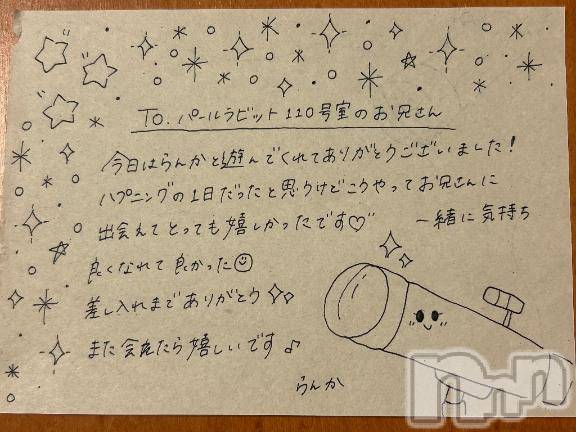 To. パールラビット 110号室のお兄さん
今日はらんかと遊んでくれてありがとうございました!
ハプニングの1日だったと思うけどこうやってお兄さんに
出会えてとっても嬉しかったです♡ 一緒に気持ち
良くなれて良かった☺
差し入れまでありがとう✧✧
また会えたら嬉しいです♪
らんか